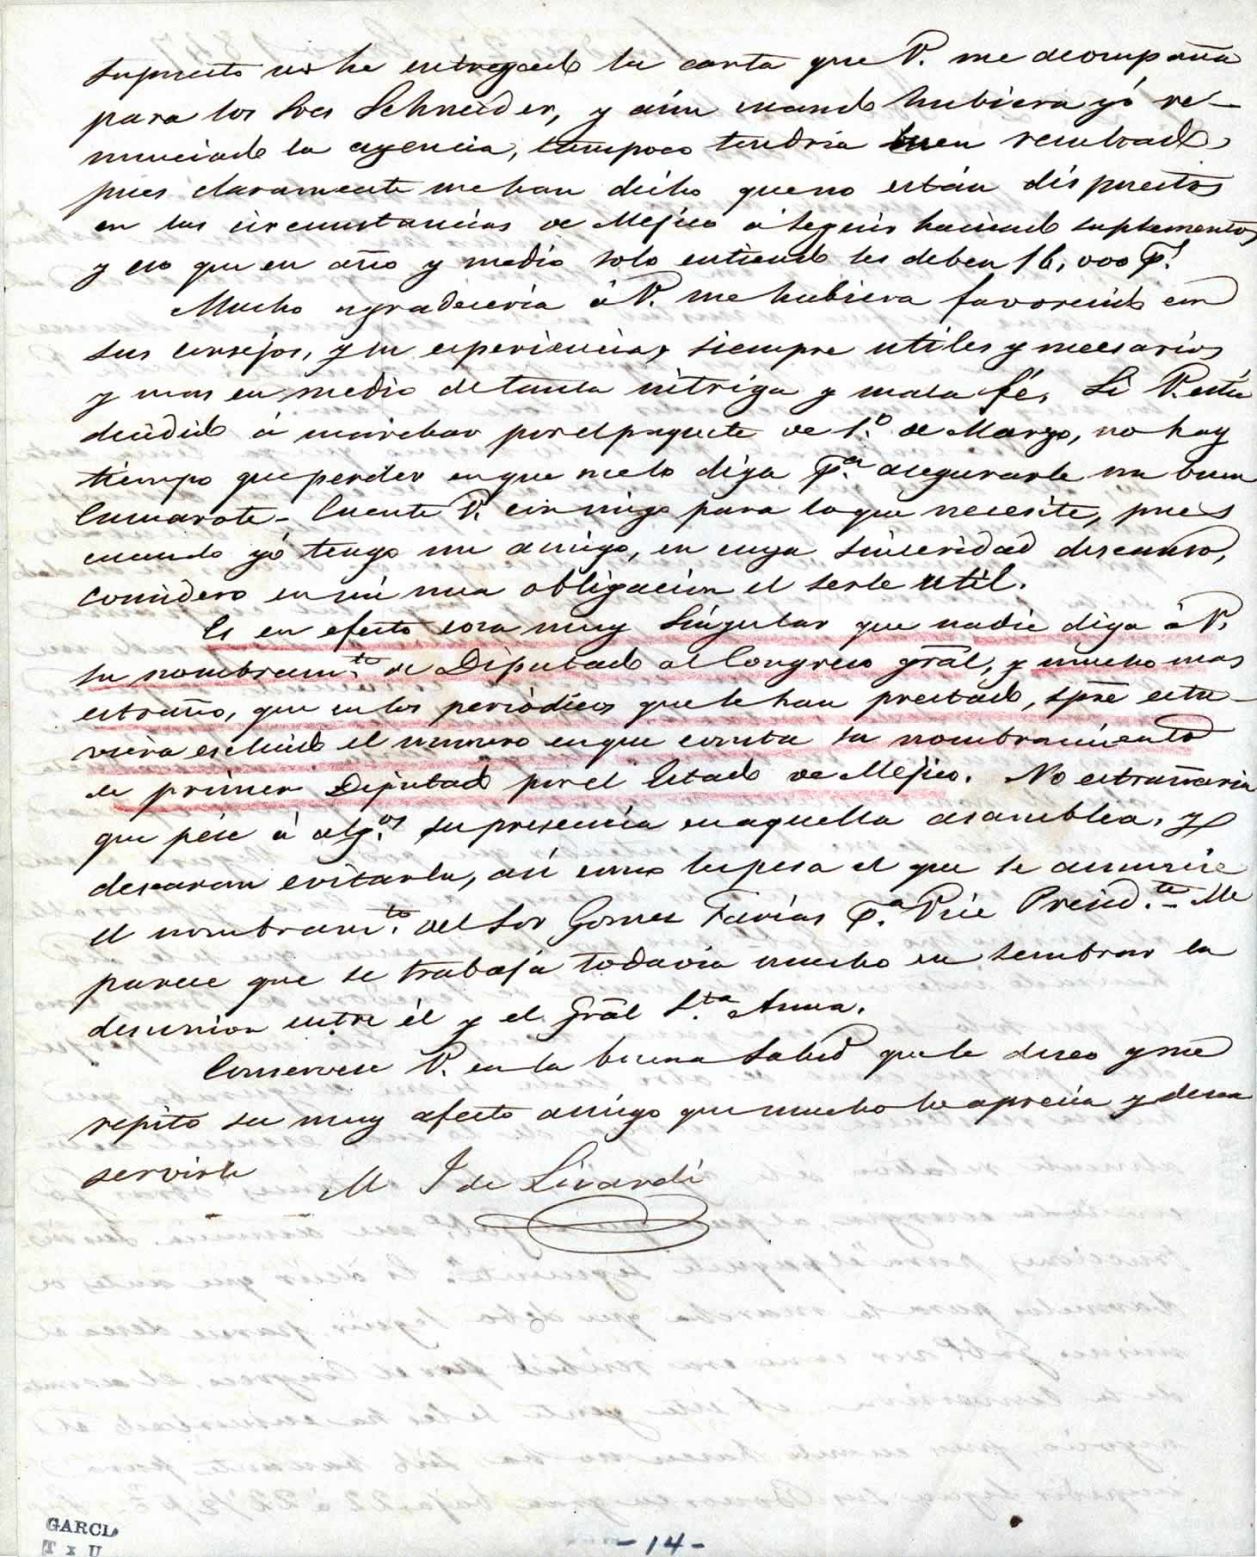 supuesto no he entregado la carta que V. me acompaña
para los Sres Schneider, y aún cuando hubiera yó re-
nunciado la agencia, tampoco tendria buen resultado,
pues claramente me han dicho que no están dispuestos
en las circunstancias de Mejico á seguir haciendo suplementos
y eso que en año y medio solo entiendo les deben 16,000 p.s
Mucho agradeceria á V. me hubiera favorecido con
sus consejos, y su esperiencia, siempre utiles y necesarios
y mas en medio de tanta intriga y mala fé. Si V. está
decidido á marchar por el paquete de 1.º de Marzo, no hay
tiempo que perder en que me lo diga p.a asegurarle un buen
Camarote - Cuente V. conmigo para lo que necesite, pues
cuando yó tengo un amigo, en cuya sinceridad descanso,
considero en mi una obligacion el serle util.
Es en efecto cosa muy singular que nadie diga á V.
su nombram.to de Diputado al Congreso grāl, y mucho mas
estraño, que en los periódicos que le han prestado, spre estu-
viera escluido el numero en que consta su nombramiento
de primer Diputado por el Estado de Mejico. No estrañaria
que pese á alg.os su presencia en aquella asamblea, y
desearan evitarla, asi como les pesa el que se anuncie
el nombram.to del Sor Gomes Farías p.a Vice Presid.te Me
parece que se trabaja todavia mucho en sembrar la
desunion entre él y el Grāl S.ta Anna.
Conservese V. en la buena salud que le deseo y me
repito su muy afecto amigo que mucho lo aprecia y desea
servirle M J de Lizardi
- 14 -
GARCIA